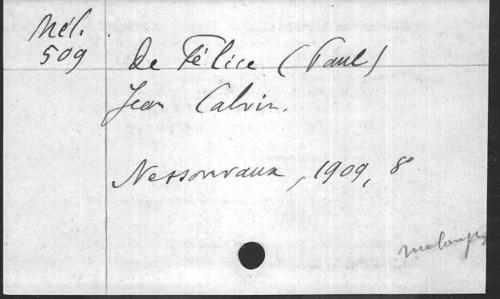 Mél.
509
De Félice (Paul)
Jean Calvin.
Nessonvaux, 1909, 8°